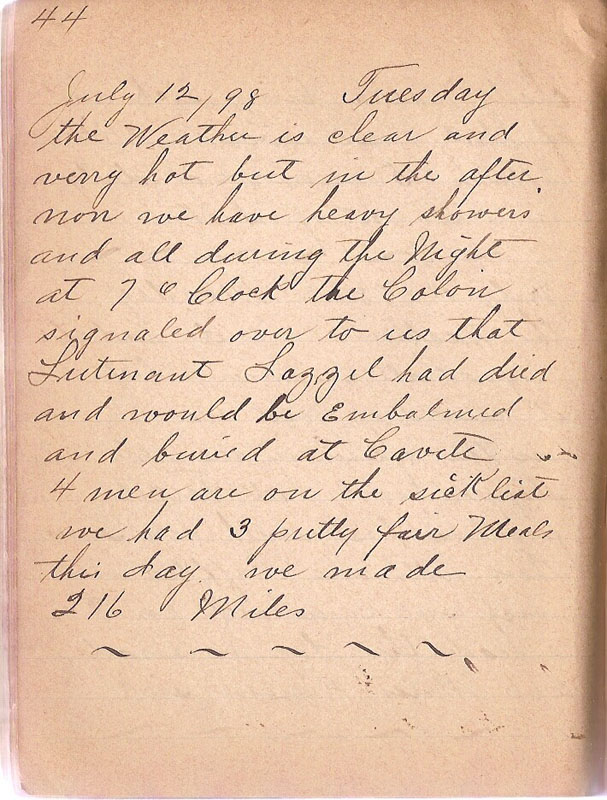 44
July 12/98 Tuesday
the Weather is clear and
verry hot but in the after
non we have heavy showers
and all during the Night
at 7 o Clock the Colon
signaled over to us that
Lutenant Lazzel had died
and would be Embalmed
and buried at Cavete
4 men are on the sick list
we had 3 pretty fair Meals
this day. we made
216 Miles